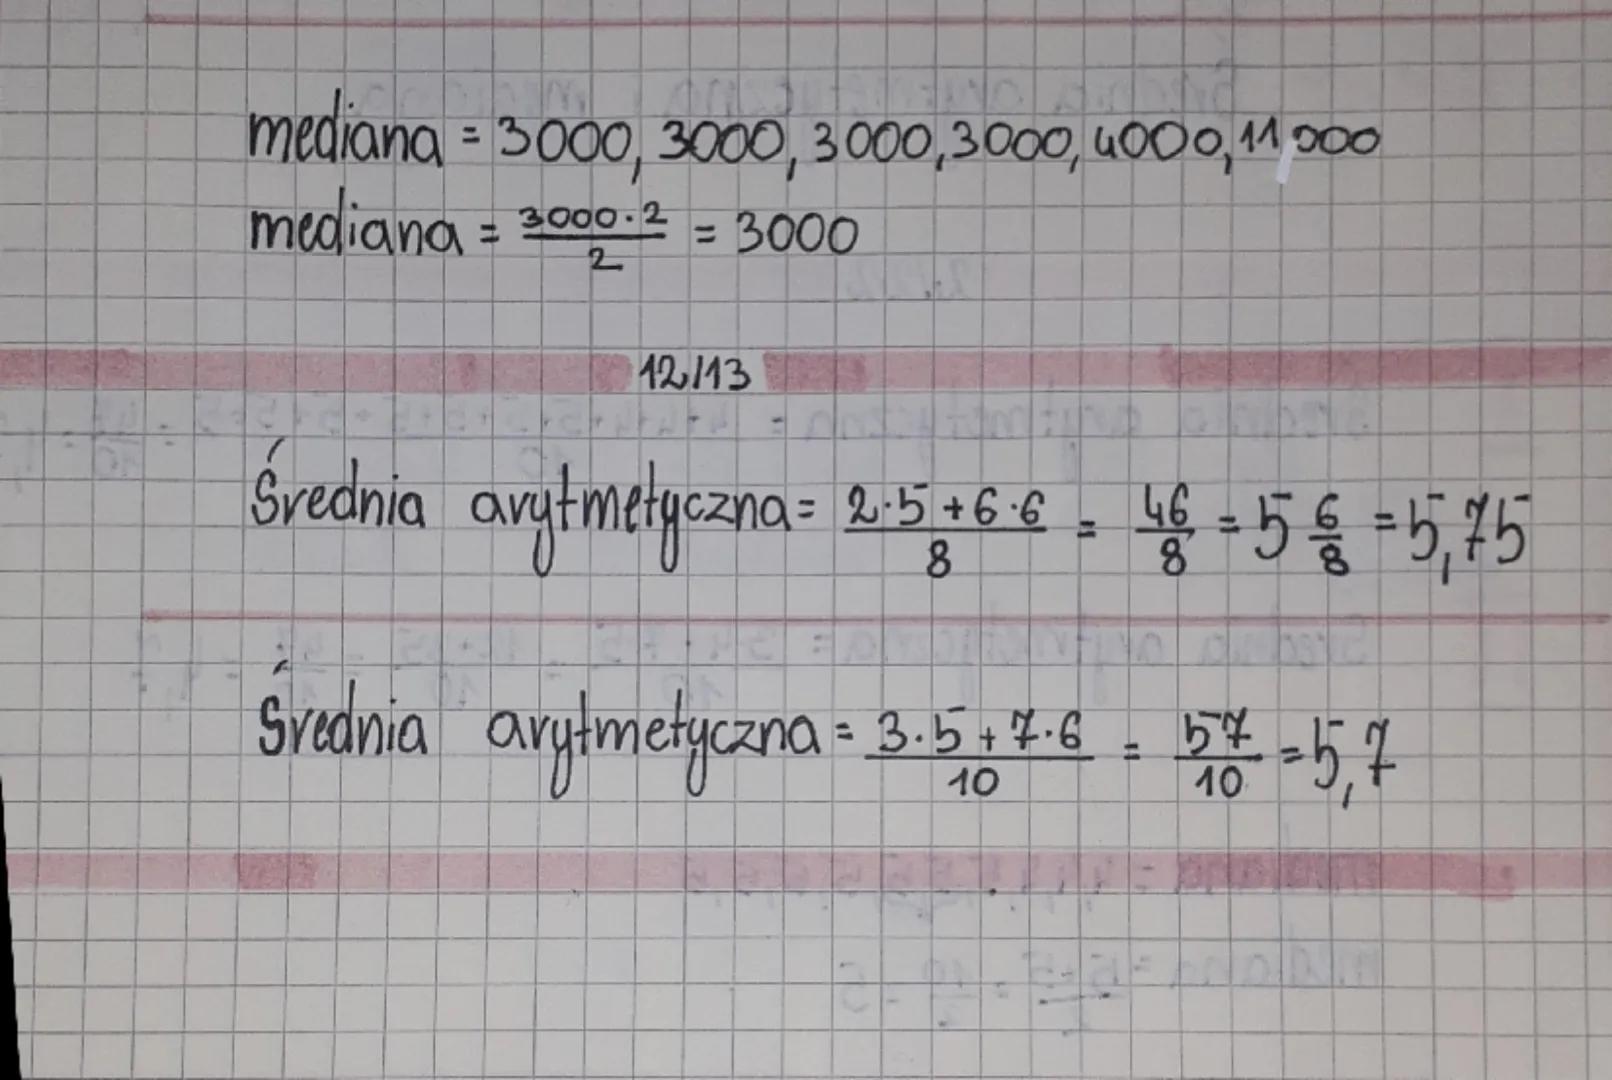 mediana = 3000, 3000, 3000, 3000, 4000, 11 000
mediana = \frac{3000 \cdot 2}{2} = 3000
12/13
Średnia arytmetyczna = \frac{2 \cdot 5 + 6 \cdot 6}{8} = \frac{46}{8} = 5 \frac{6}{8} = 5,75
Średnia arytmetyczna = \frac{3 \cdot 5 + 7 \cdot 6}{10} = \frac{57}{10} = 5,7